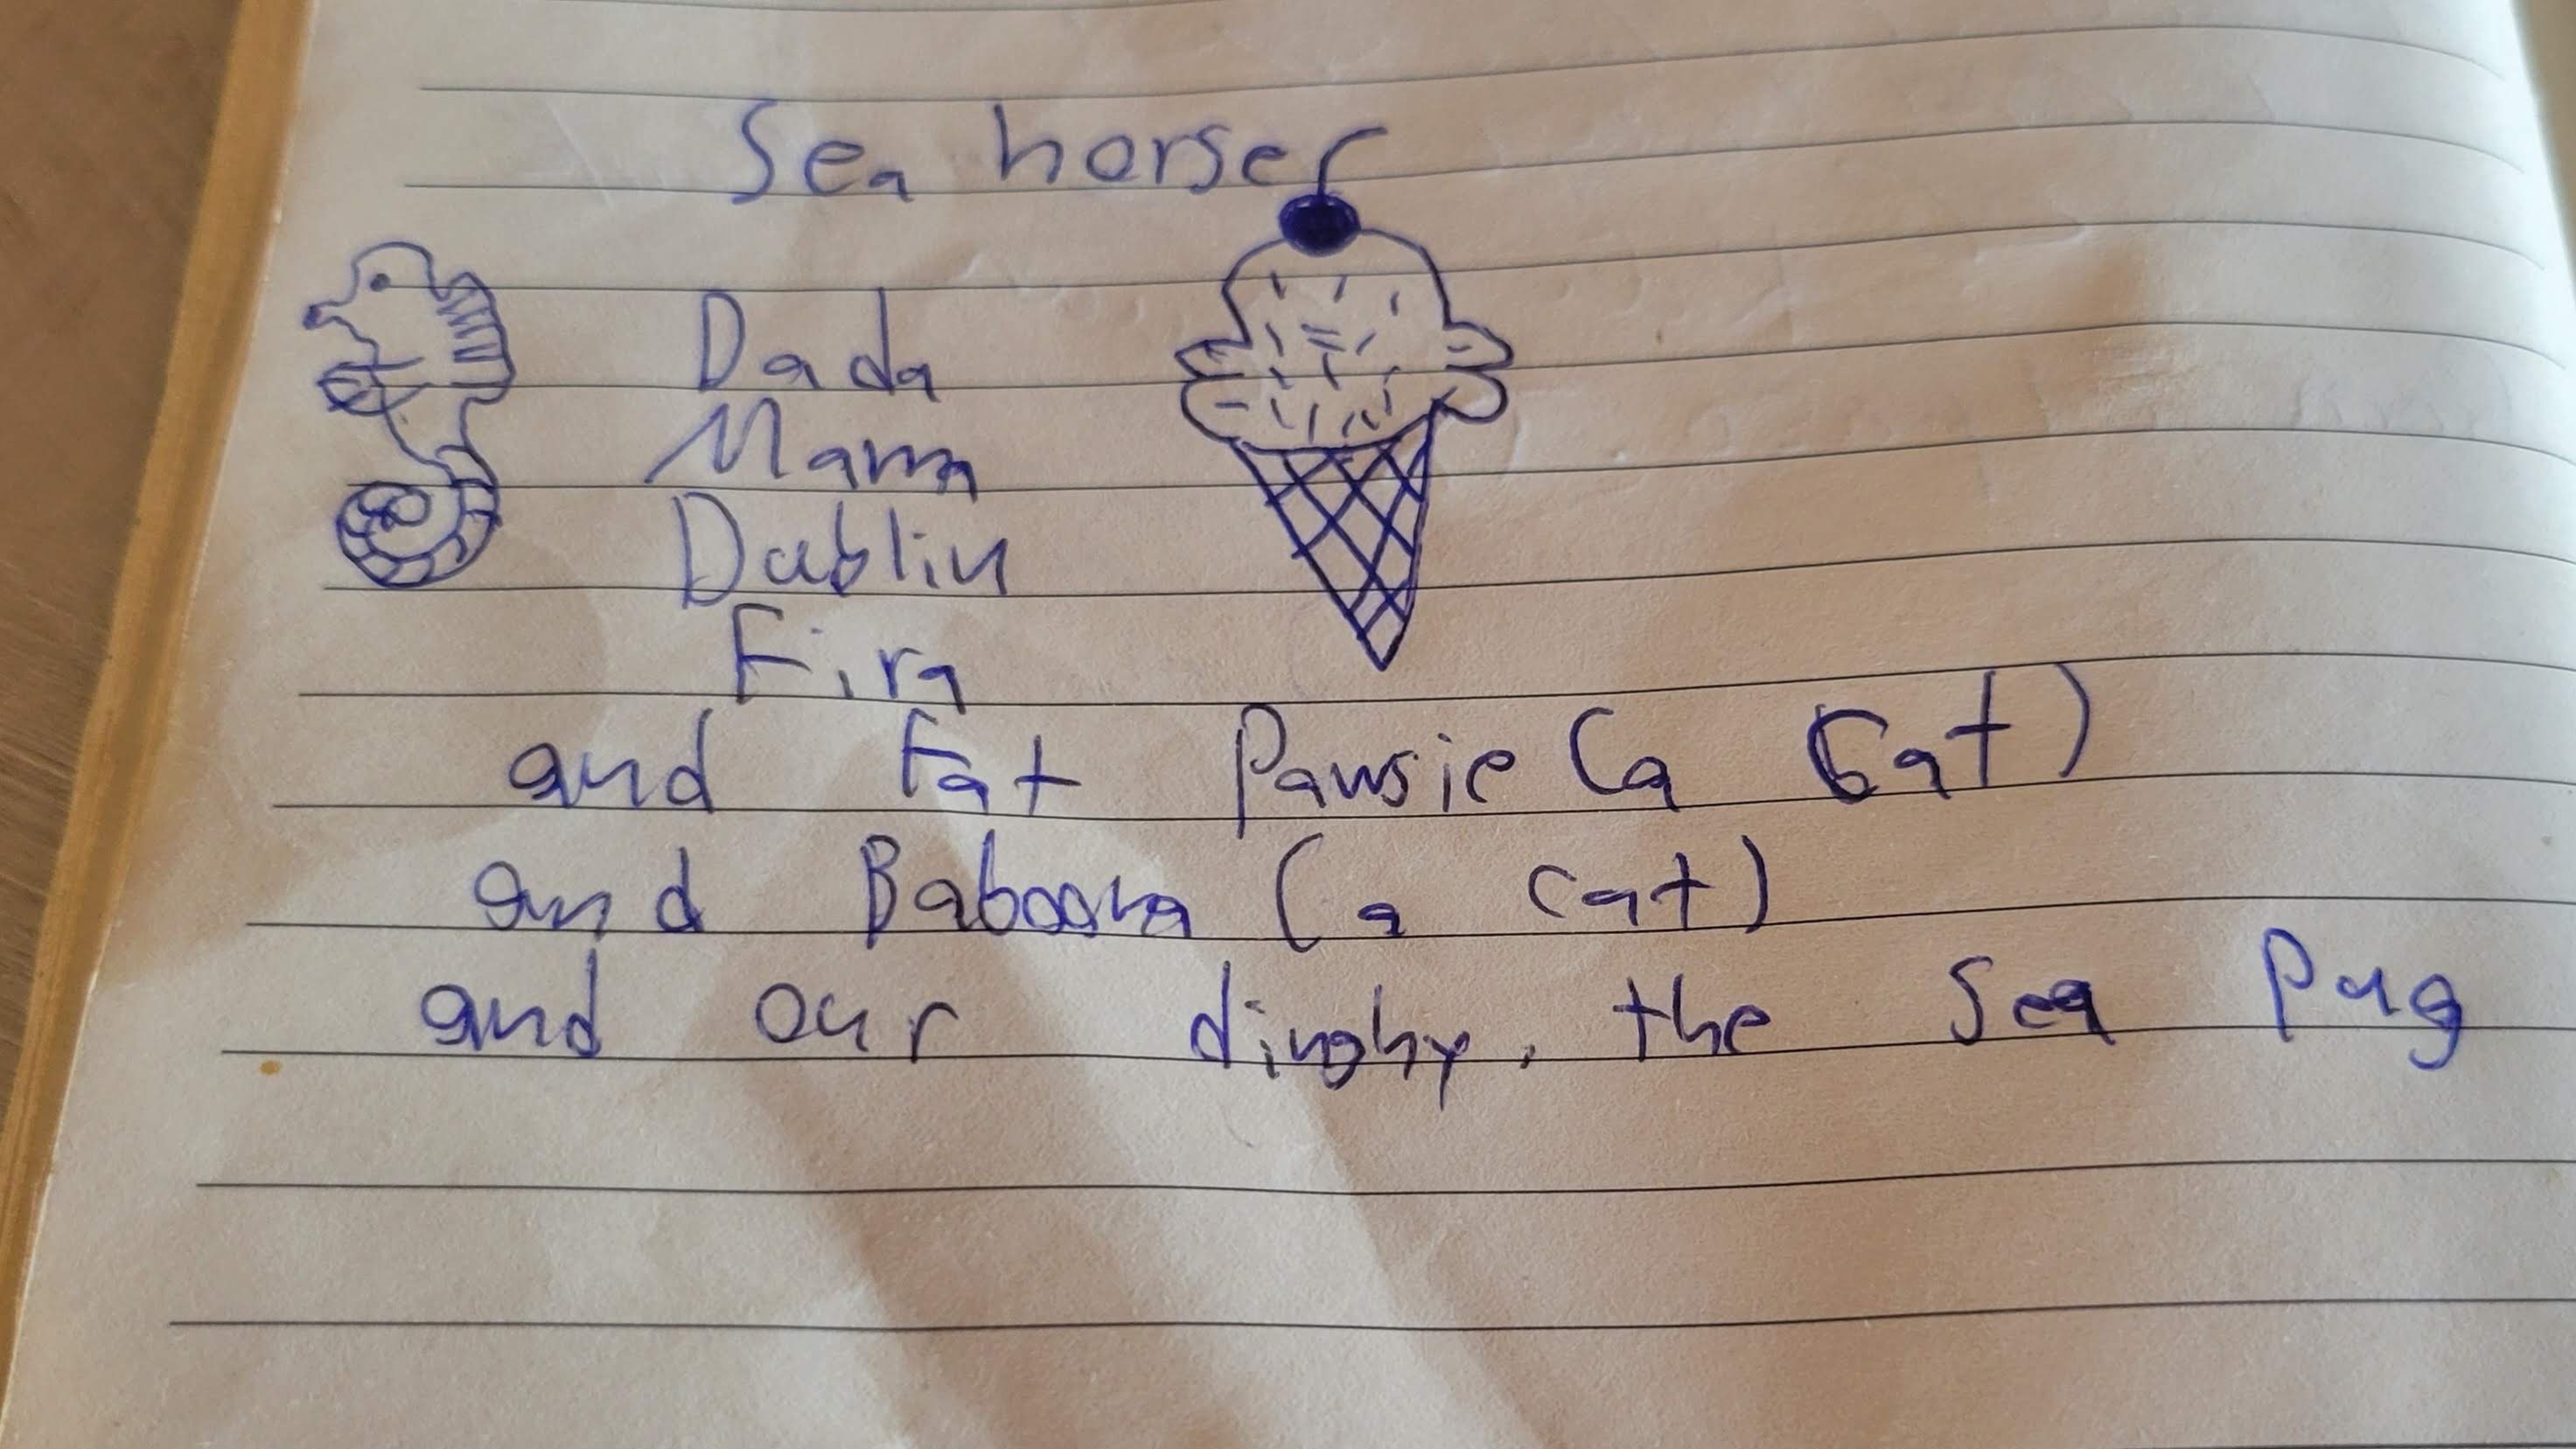 Sea horser
Dada
Mama
Dublin
Fira
and Fat Pawsie (a Cat)
and Baboona (a cat)
and our dinghy, the Sea Pug